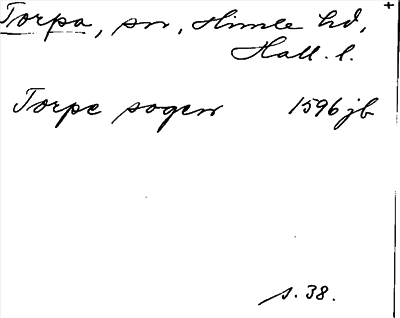 Torpa, sn, Himle hd,
Hall. l.
Torpe sogen 1596 jb
s. 38.